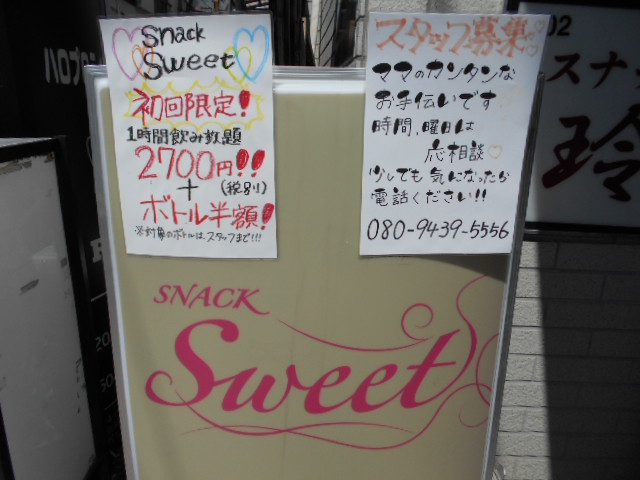 Snack
Sweet
初回限定!
1時間飲み放題
2700円!!
+
(税別)
ボトル半額!
※対象のボトルは、スタッフまで!!!
スタッフ募集
ママのカンタンな
お手伝いです
時間、曜日は
応相談
少しでも気になったら
電話ください!!
080-9439-5556
SNACK
Sweet
02
スナッ
玲
ハロプ